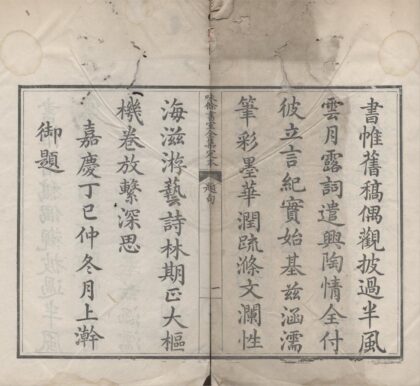 書惟舊稿偶觀披過半風
雲月露詞遣興陶情全付
彼立言紀實始基茲涵濡
筆彩墨華潤疏滌文瀾性
味餘書室全集定本
題句
一
海滋游藝詩林期正大樞
機卷放繫深思
嘉慶丁巳仲冬月上澣
御題